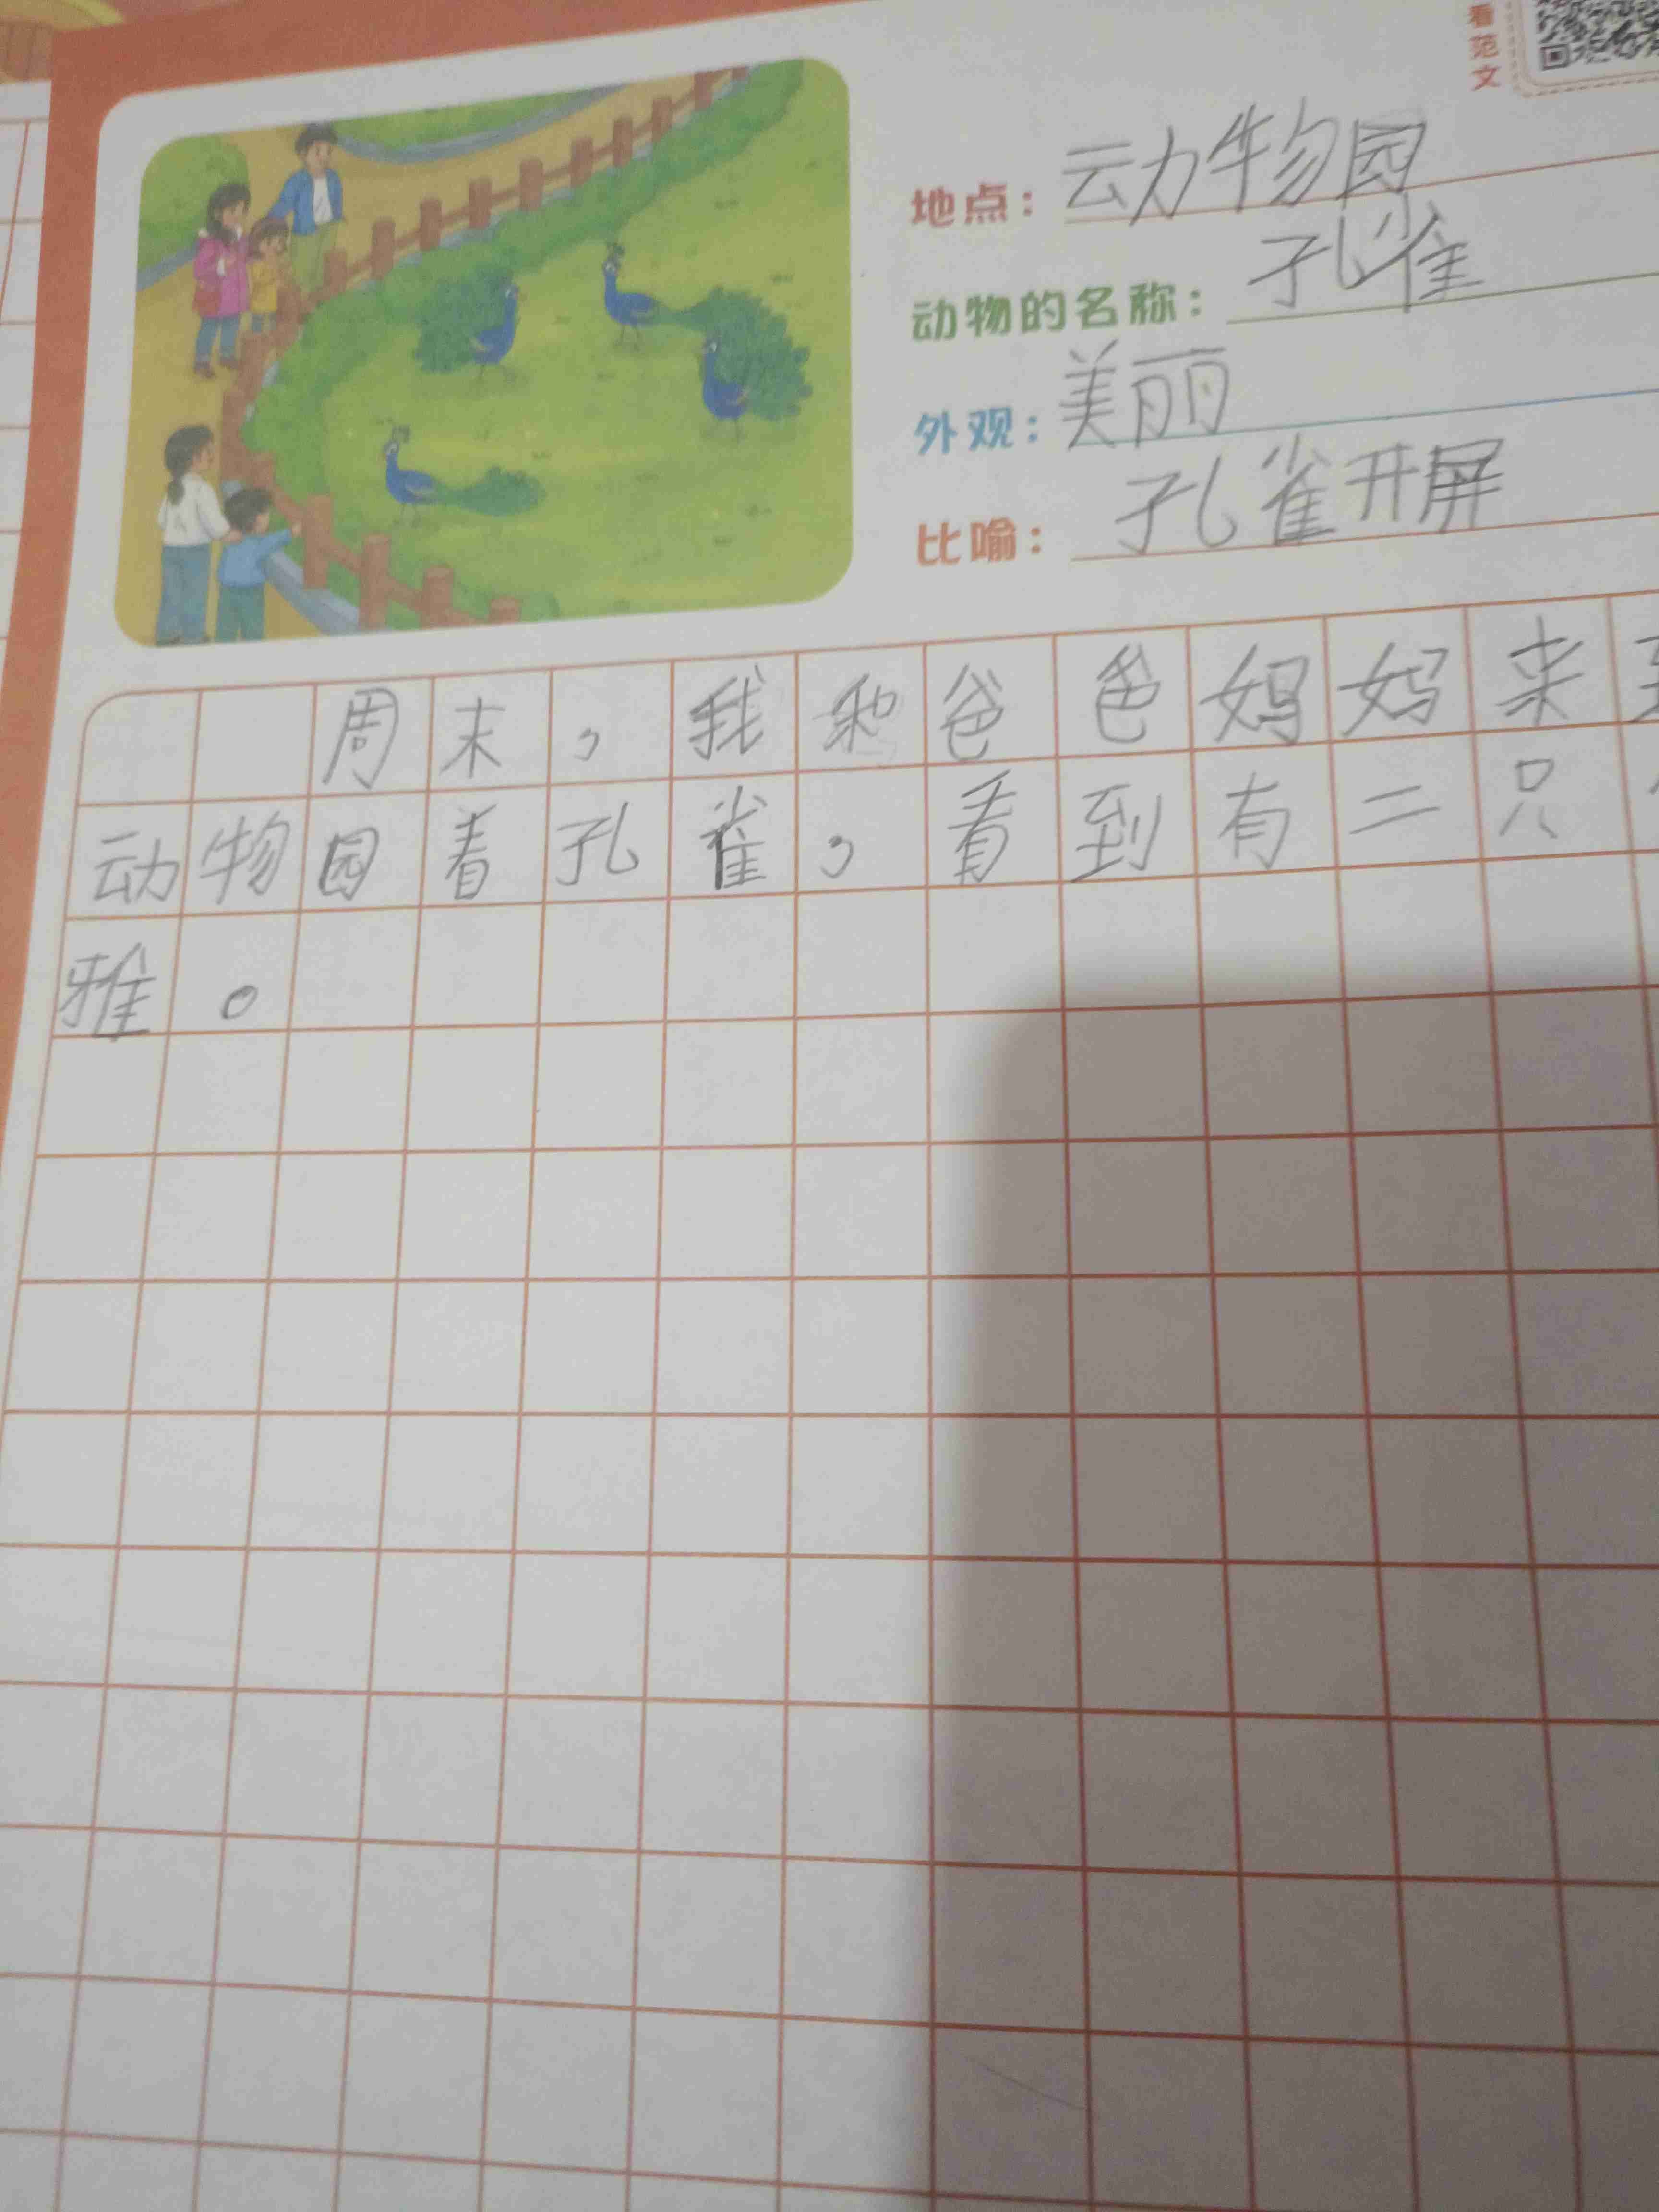 看范文
地点：动物园
动物的名称：孔雀
外观：美丽
比喻：孔雀开屏
周末，我和爸爸妈妈来
动物园着孔雀，看到有二只
雅。